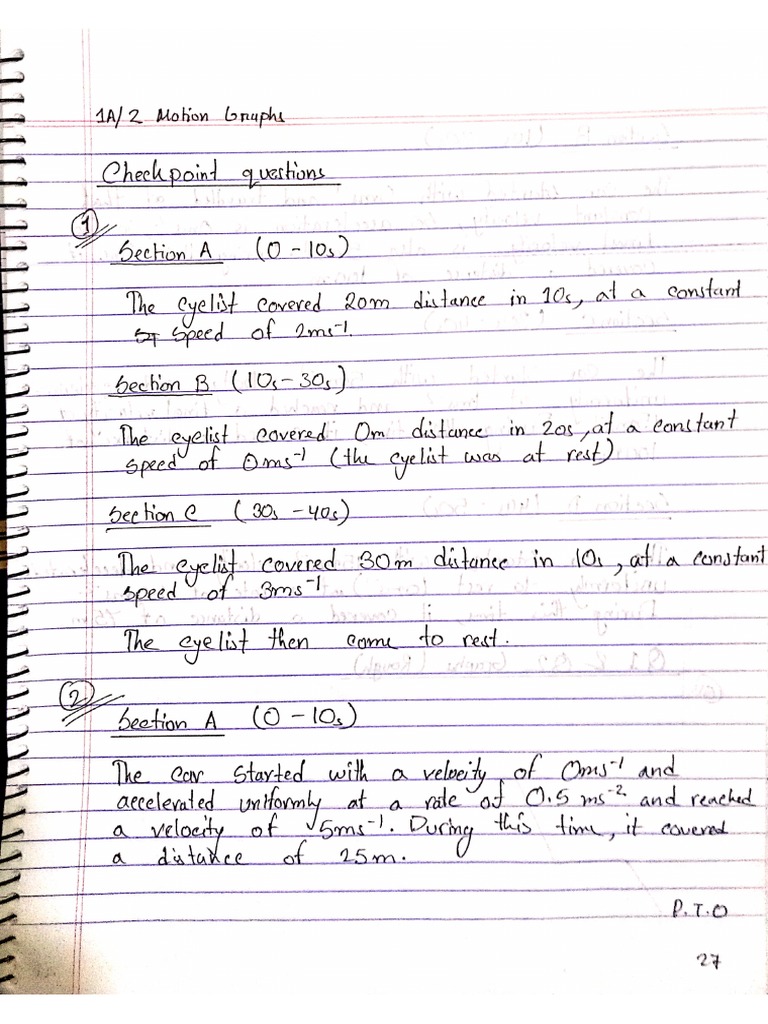 1A/2 Motion Graphs
Checkpoint questions
1
Section A (0 - 10s)
The cyclist covered 20m distance in 10s, at a constant
speed of 2ms⁻¹.
Section B (10s - 30s)
The cyclist covered 0m distance in 20s, at a constant
speed of 0ms⁻¹ (the cyclist was at rest)
Section C (30s - 40s)
The cyclist covered 30m distance in 10s, at a constant
speed of 3ms⁻¹
The cyclist then come to rest.
2
Section A (0 - 10s)
The car started with a velocity of 0ms⁻¹ and
accelerated uniformly at a rate of 0.5 ms⁻² and reached
a velocity of 5ms⁻¹. During this time, it covered
a distance of 25m.
P.T.O
27